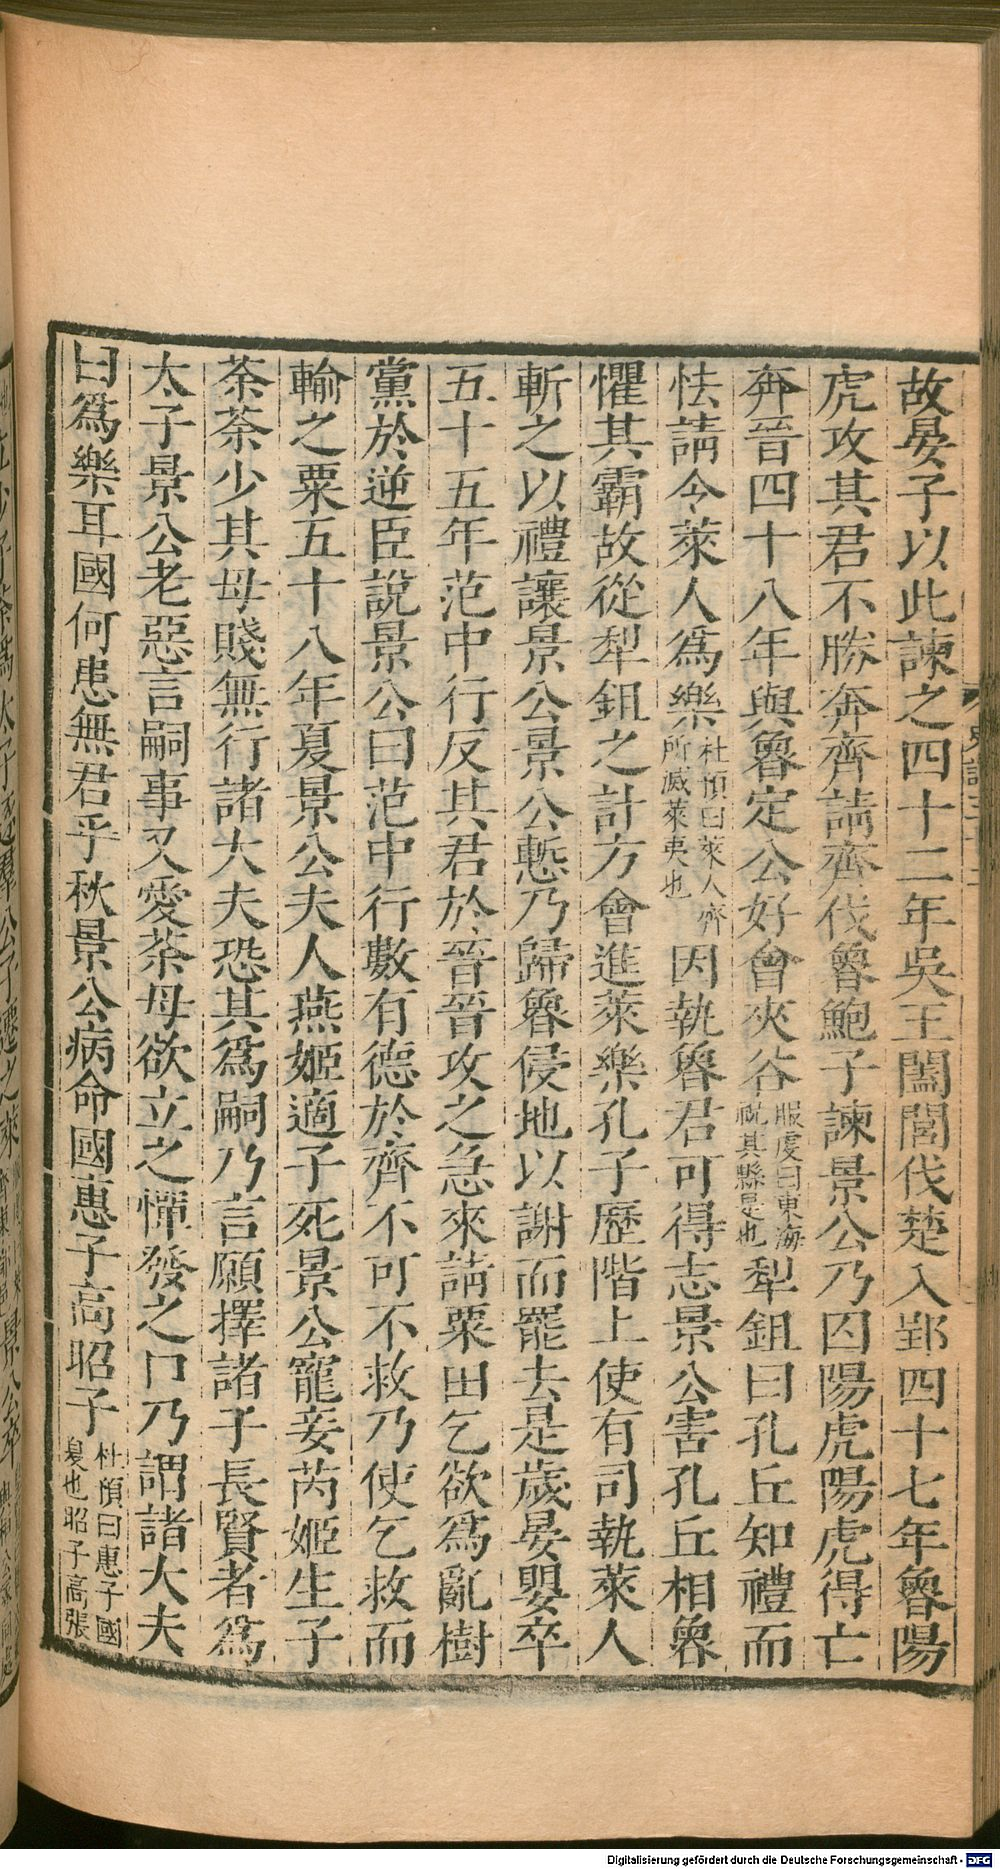 故晏子以此諫之四十二年吳王闔閭伐楚入郢四十七年魯陽
虎攻其君不勝奔齊請齊伐魯鮑子諫景公乃囚陽虎陽虎得亡
奔晉四十八年與魯定公好會夾谷服虔曰東海祝其縣是也犁鉏曰孔丘知禮而
怯請令萊人爲樂杜預曰萊人齊所滅萊夷也因執魯君可得志景公害孔丘相魯
懼其霸故從犁鉏之計方會進萊樂孔子歷階上使有司執萊人
斬之以禮讓景公景公慙乃歸魯侵地以謝而罷去是歲晏嬰卒
五十五年范中行反其君於晉晉攻之急來請粟田乞欲爲亂樹
黨於逆臣說景公曰范中行數有德於齊不可不救乃使乞救而
輸之粟五十八年夏景公夫人燕姬適子死景公寵妾芮姬生子
荼荼少其母賤無行諸大夫恐其爲嗣乃言願擇諸子長賢者爲
太子景公老惡言嗣事又愛荼母欲立之憚發之口乃謂諸大夫
曰爲樂耳國何患無君乎秋景公病命國惠子高昭子杜預曰惠子國夏也昭子高張
Digitalisierung gefördert durch die Deutsche Forschungsgemeinschaft - DFG